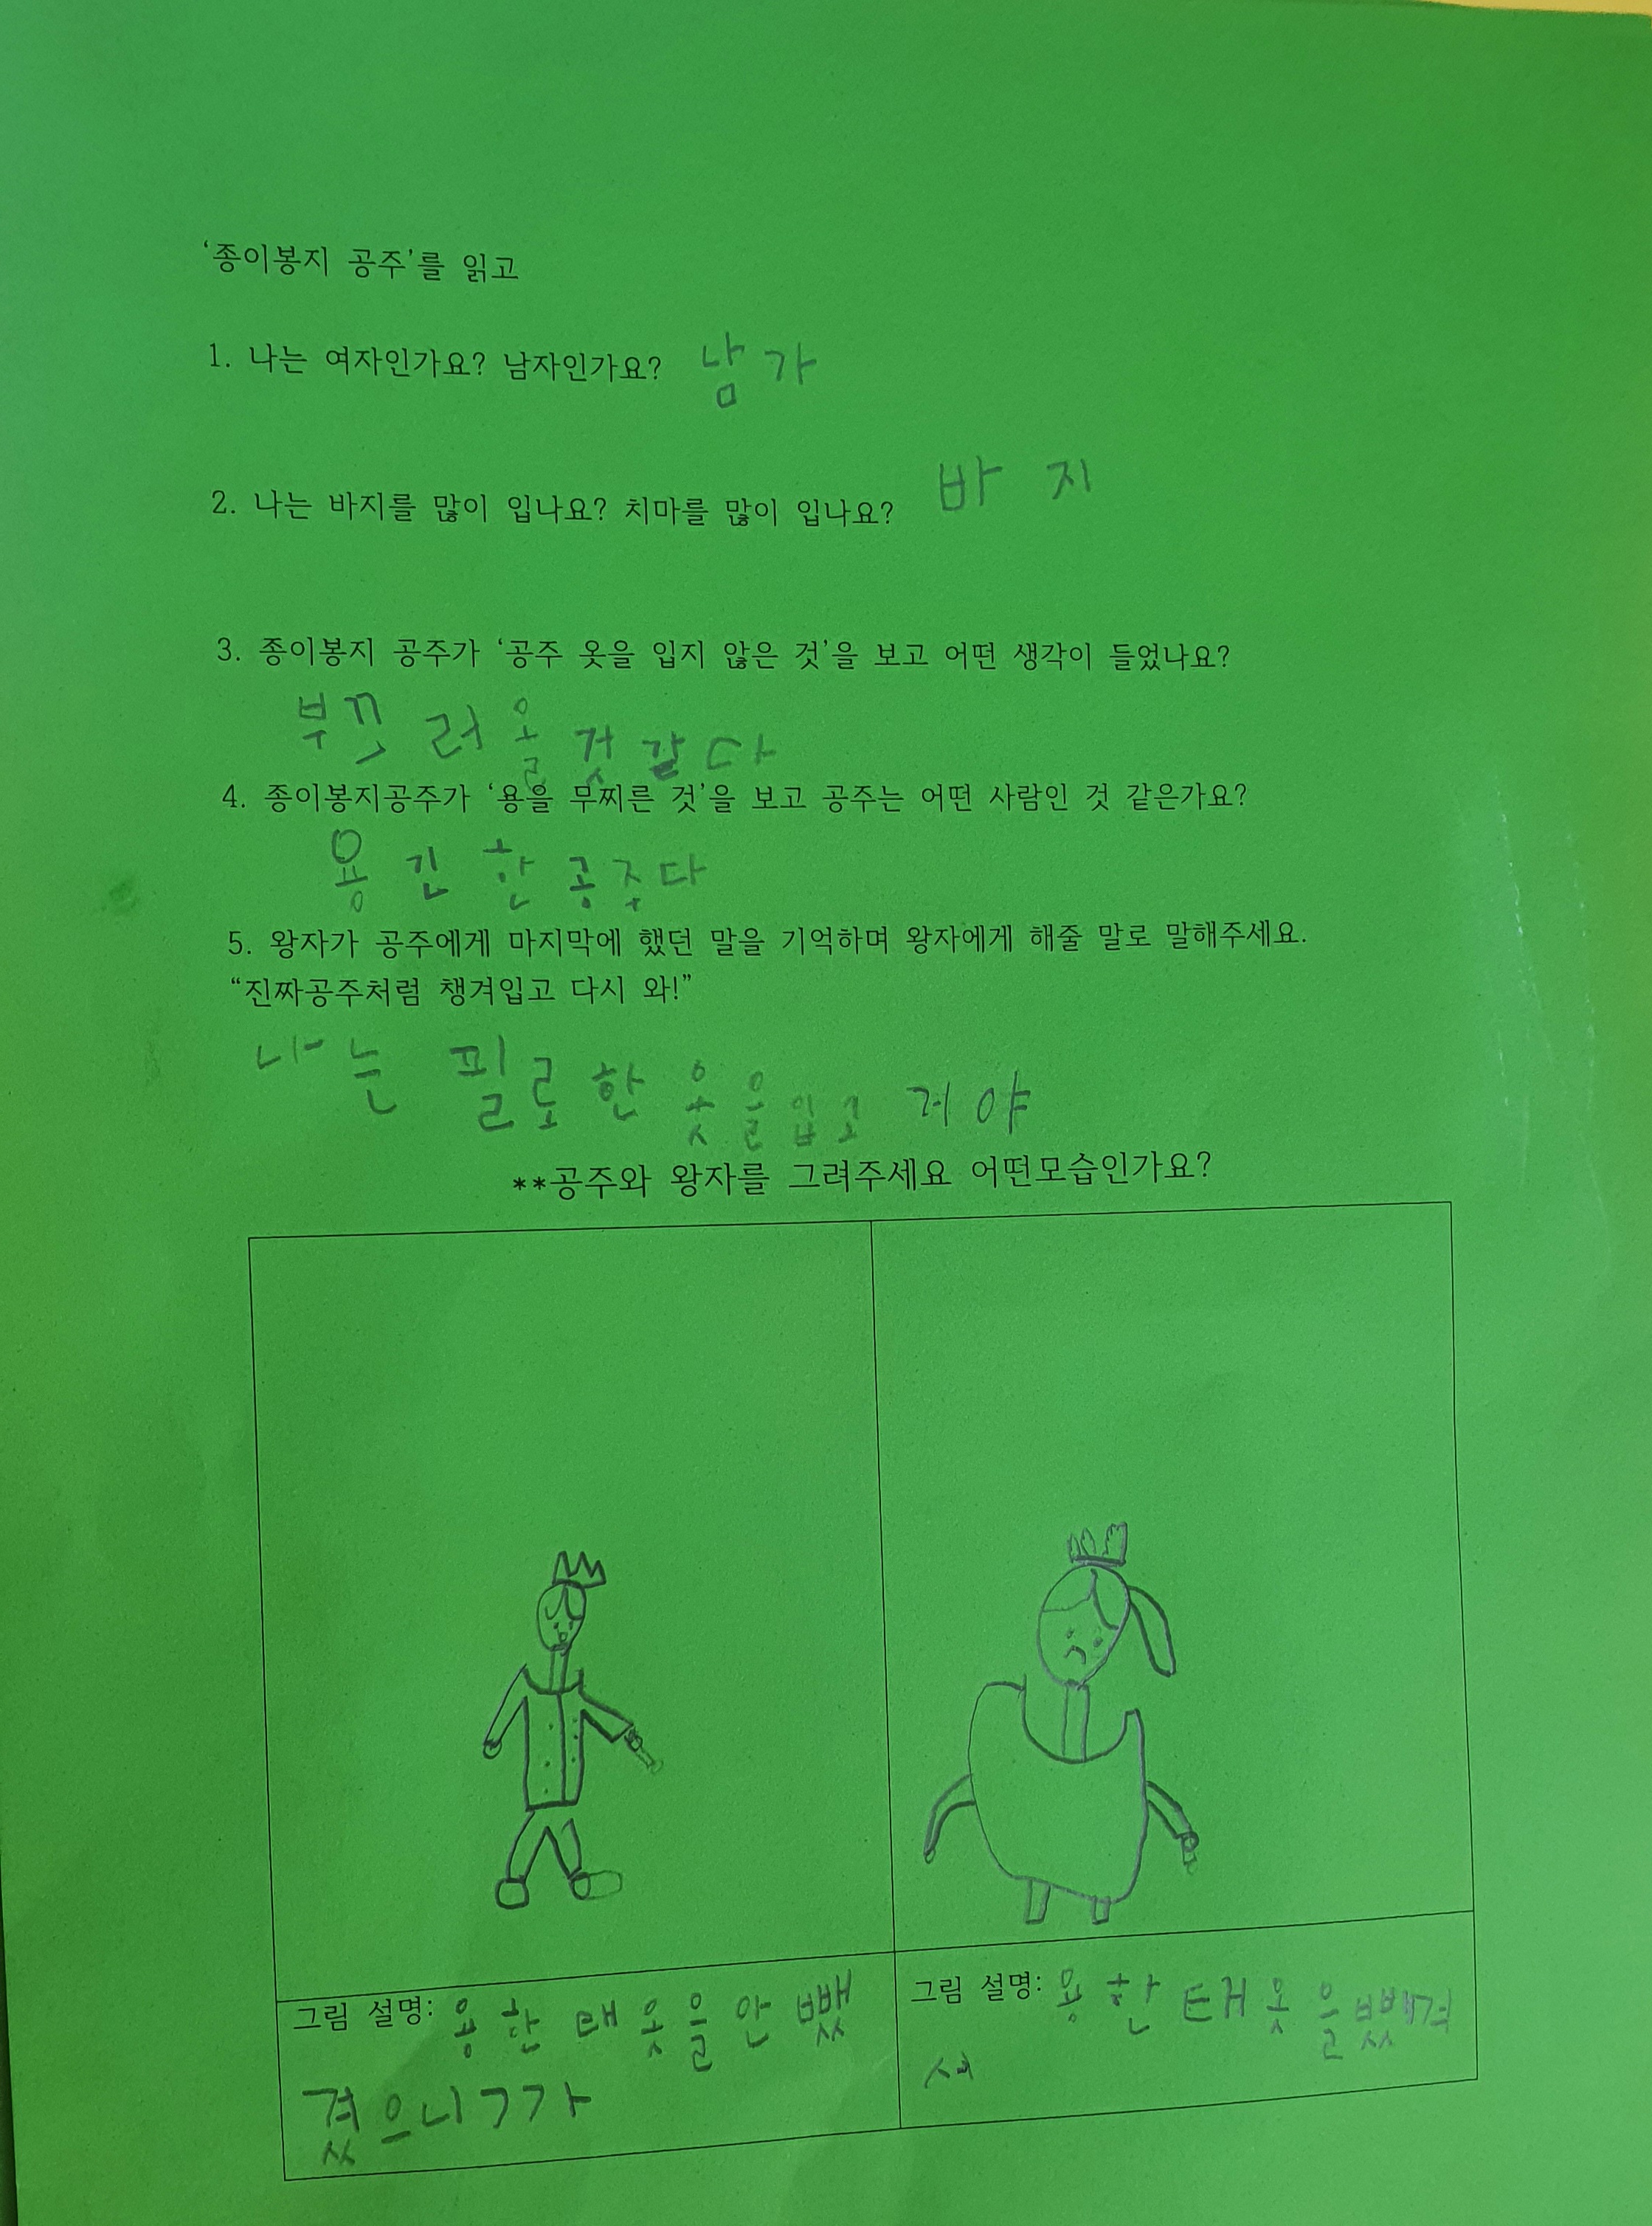 ‘종이봉지 공주’를 읽고
1. 나는 여자인가요? 남자인가요? 남가
2. 나는 바지를 많이 입나요? 치마를 많이 입나요? 바지
3. 종이봉지 공주가 ‘공주 옷을 입지 않은 것’을 보고 어떤 생각이 들었나요?
부끄러울 것 갈다
4. 종이봉지공주가 ‘용을 무찌른 것’을 보고 공주는 어떤 사람인 것 같은가요?
용긴한 공주다
5. 왕자가 공주에게 마지막에 했던 말을 기억하며 왕자에게 해줄 말로 말해주세요.
“진짜공주처럼 챙겨입고 다시 와!”
나는 필로한 옷을입고 거야
**공주와 왕자를 그려주세요 어떤모습인가요?
그림 설명: 용한태 옷을 안 뺐
겼으니ㄱ가
그림 설명: 용한태 옷을